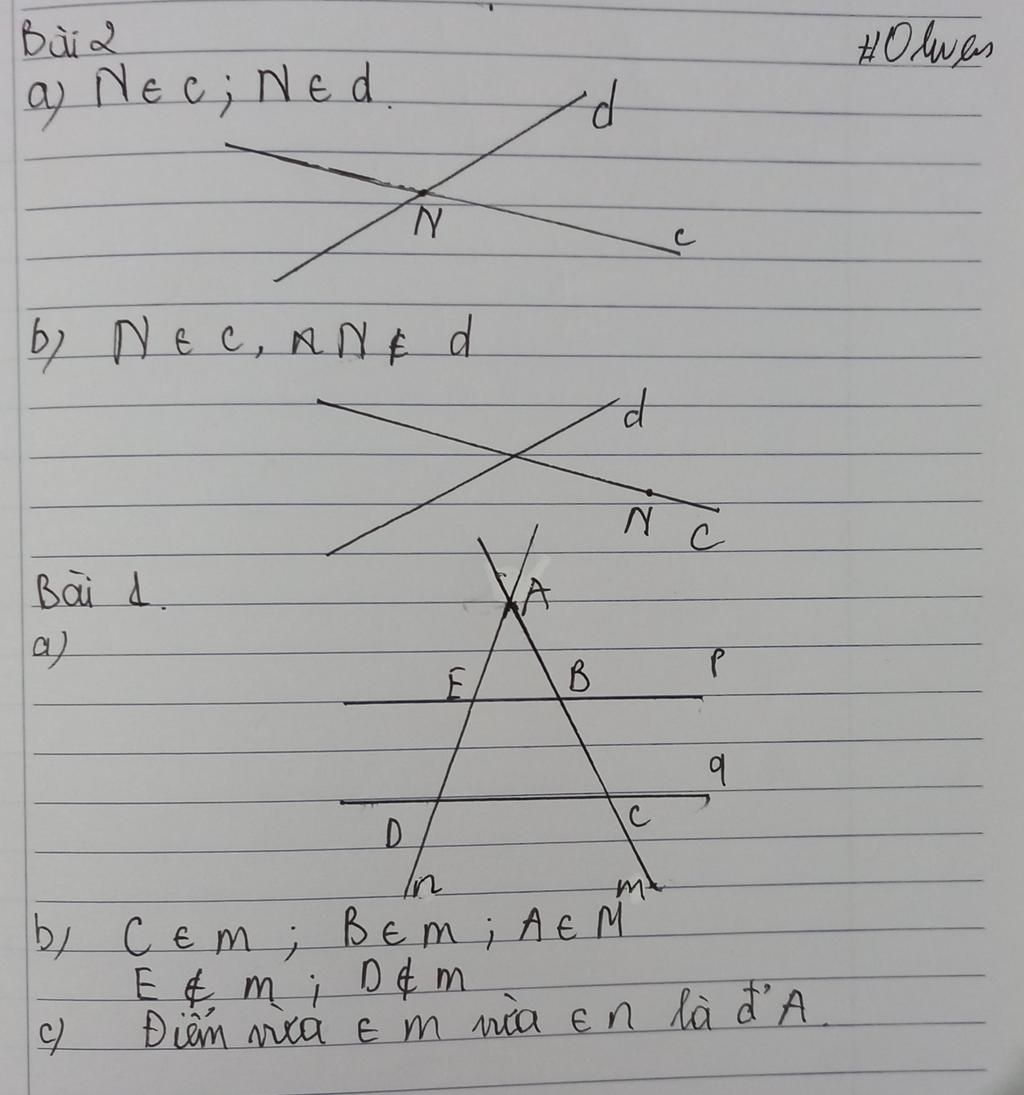 Bài 2
#Olwen
a) N ∈ c ; N ∈ d.
d
N
c
b) N ∈ c, N ∉ d
d
N
C
Bài 1.
a)
A
E
B
p
q
D
C
n
m
b) C ∈ m ; B ∈ m ; A ∈ M
E ∉ m ; D ∉ m
c) Điểm vừa ∈ m vừa ∈ n là đ' A.